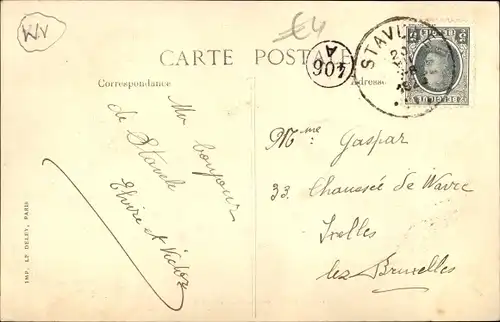 WV
€4
CARTE POSTALE
A
406
STAVE
Correspondance
Adresse
Un bonjour
de Stavele
Elvire et Victor
Mme: Gaspar
33. Chaussée de Wavre
Ixelles
lez Bruxelles
IMP. LE DELEY, PARIS